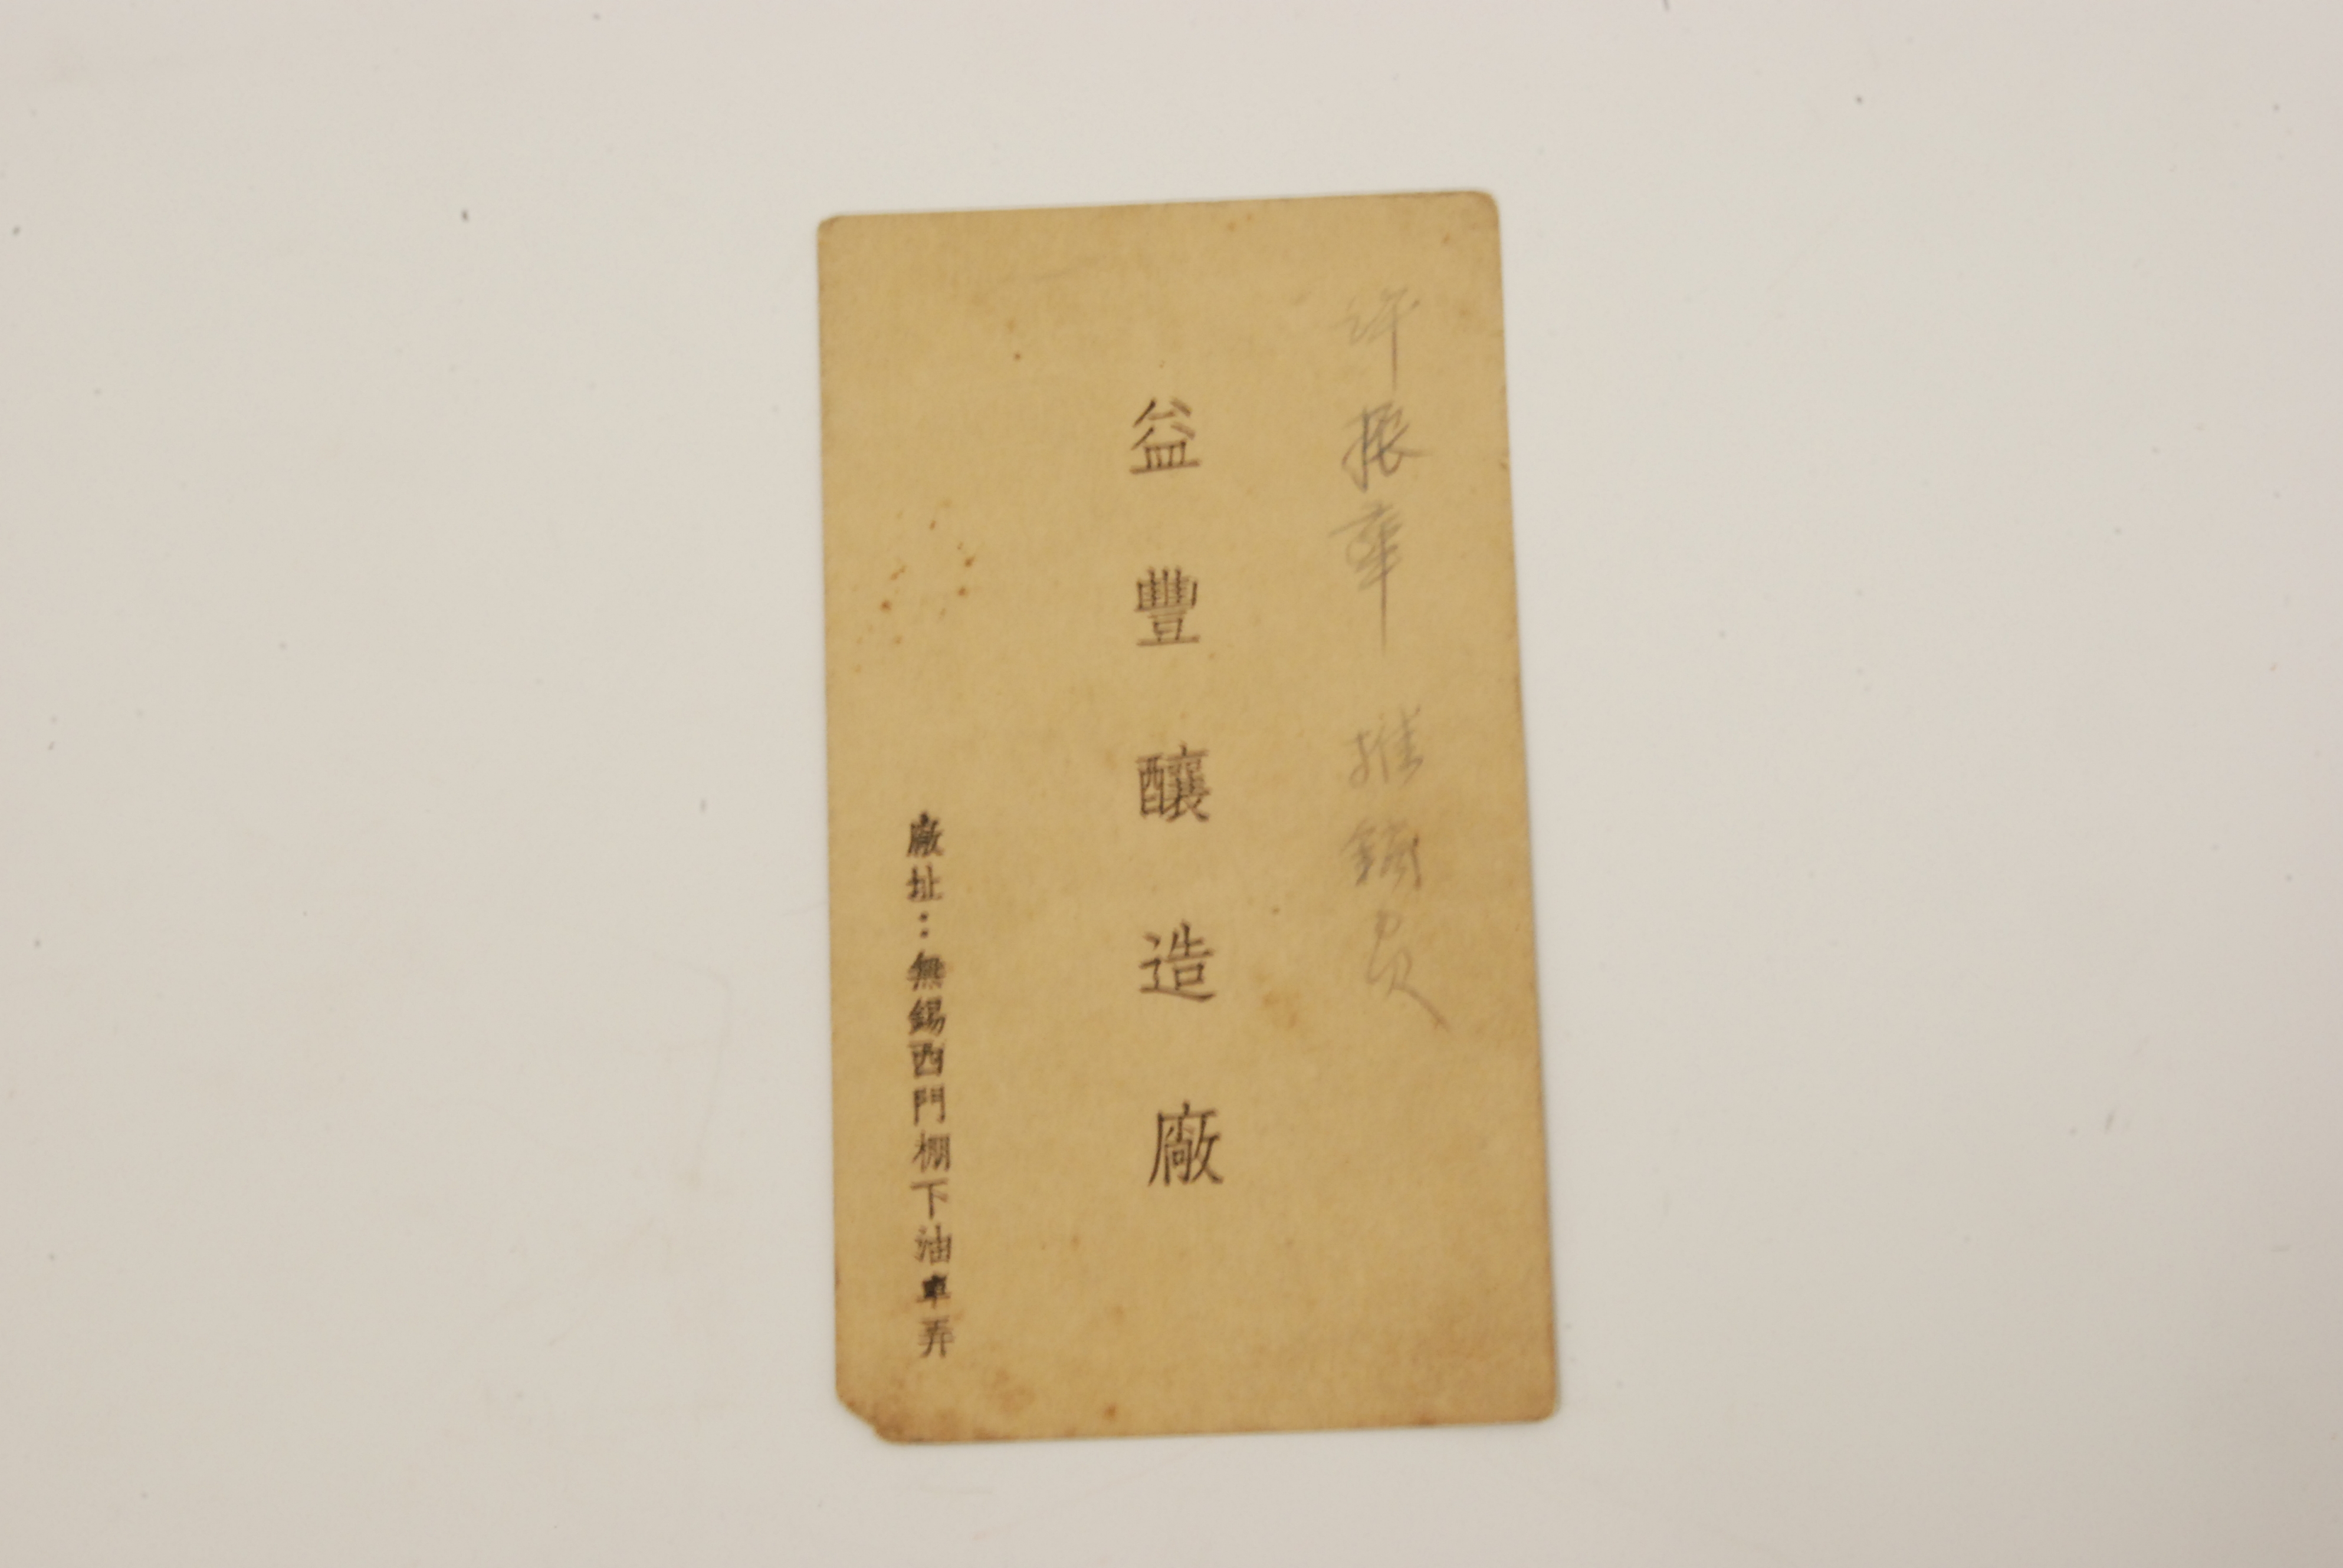 許振華 推銷員
益豐釀造廠
廠址：無錫西門棚下油車弄